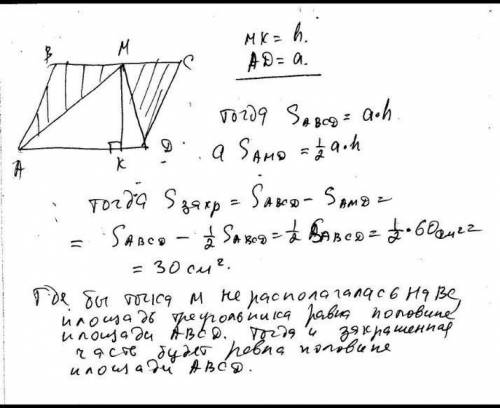 B M C
A K D
MK = h.
AD = a.
тогда S ABCD = a·h
a S AMD = ½ a·h
тогда S закр = S ABCD - S AMD =
= S ABCD - ½ S ABCD = ½ S ABCD = ½·60 см² =
= 30 см².
Где бы точка M не располагалась на BC,
площадь треугольника равна половине
площади ABCD. Тогда и закрашенная
часть будет равна половине
площади ABCD.